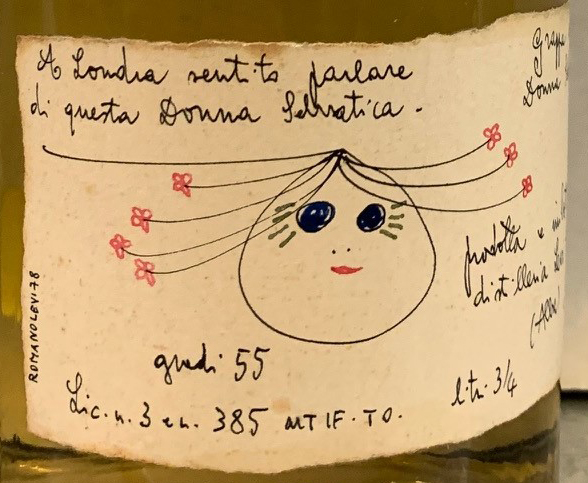 A Londra sentito parlare
di questa Donna Selvatica.
Grappa
Donna
prodotta e
distilleria
gradi 55
litri 3/4
Lic. n. 3 e n. 385 UTIF. TO.
ROMANO LEVI 78